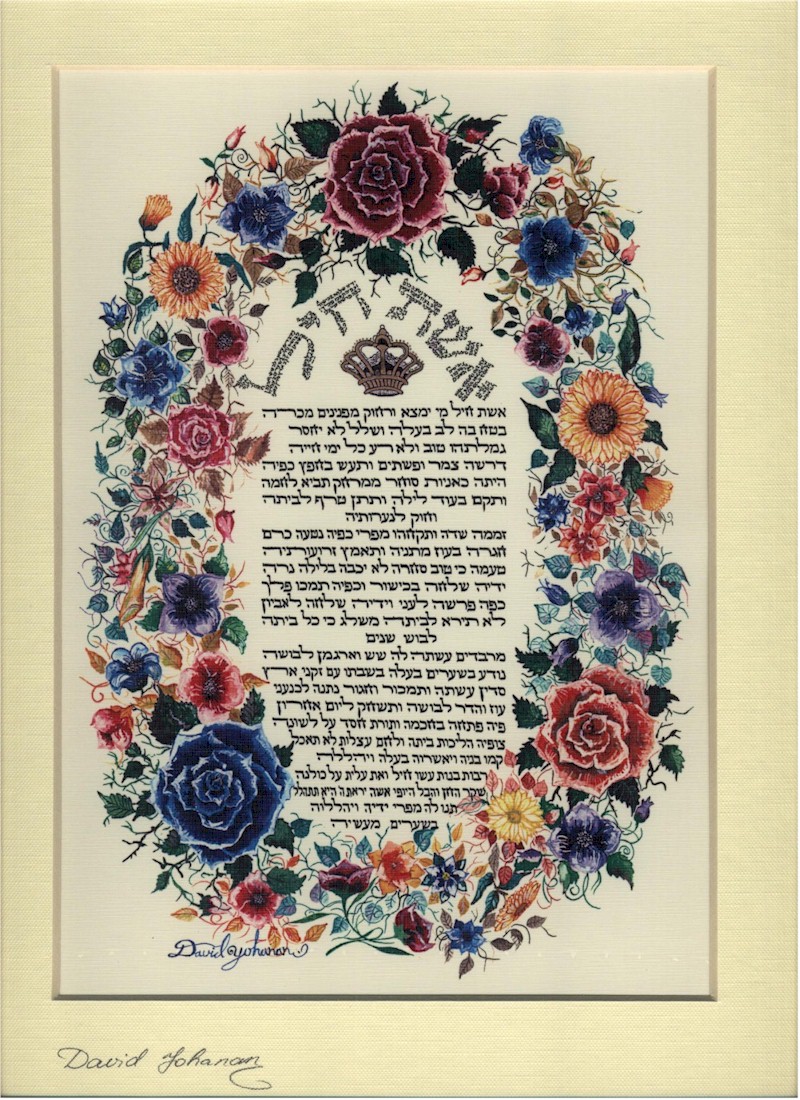 אשת חיל
אשת חיל מי ימצא ורחוק מפנינים מכרה
בטח בה לב בעלה ושלל לא יחסר
גמלתהו טוב ולא רע כל ימי חייה
דרשה צמר ופשתים ותעש בחפץ כפיה
היתה כאניות סוחר ממרחק תביא לחמה
ותקם בעוד לילה ותתן טרף לביתה
וחוק לנערותיה
זממה שדה ותקחהו מפרי כפיה נטעה כרם
חגרה בעוז מתניה ותאמץ זרועותיה
טעמה כי טוב סחרה לא יכבה בלילה נרה
ידיה שלחה בכישור וכפיה תמכו פלך
כפה פרשה לעני וידיה שלחה לאביון
לא תירא לביתה משלג כי כל ביתה
לבוש שנים
מרבדים עשתה לה שש וארגמן לבושה
נודע בשערים בעלה בשבתו עם זקני ארץ
סדין עשתה ותמכור וחגור נתנה לכנעני
עוז והדר לבושה ותשחק ליום אחרון
פיה פתחה בחכמה ותורת חסד על לשונה
צופיה הליכות ביתה ולחם עצלות לא תאכל
קמו בניה ויאשרוה בעלה ויהללה
רבות בנות עשו חיל ואת עלית על כולנה
שקר החן והבל היופי אשה יראת ה' היא תתהלל
תנו לה מפרי ידיה ויהללוה
בשערים מעשיה
David Yohanan
David Yohanan